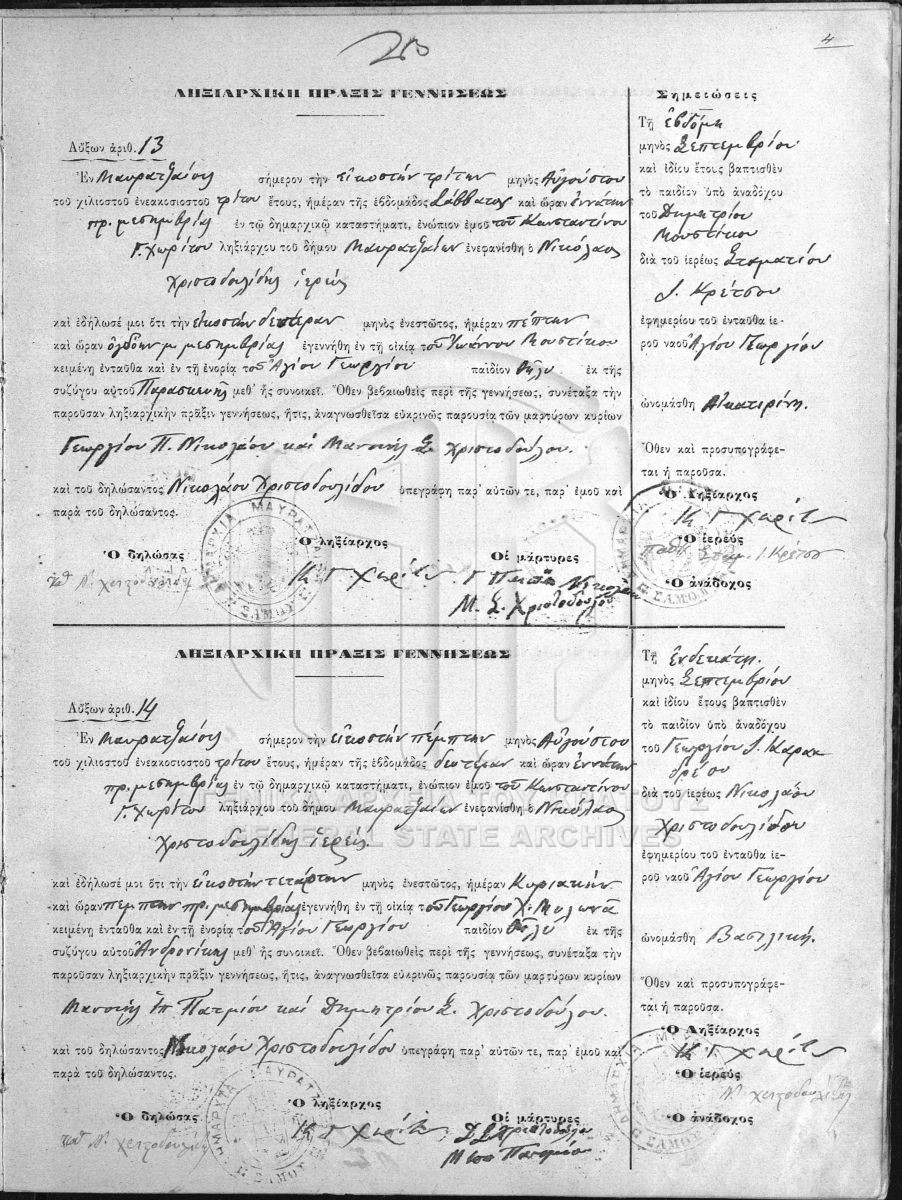 4
ΛΗΞΙΑΡΧΙΚΗ ΠΡΑΞΙΣ ΓΕΝΝΗΣΕΩΣ
Αὔξων ἀριθ. 13
Ἐν Μαυρατζαίοις σήμερον τὴν εἰκοστὴν τρίτην μηνὸς Αὐγούστου
τοῦ χιλιοστοῦ ἐνεακοσιοστοῦ τρίτου ἔτους, ἡμέραν τῆς ἑβδομάδος Σάββατον καὶ ὥραν ἐννάτην
πρ. μεσημβρίας ἐν τῷ δημαρχικῷ καταστήματι, ἐνώπιον ἐμοῦ τοῦ Κωνσταντίνου
Γ. Χωρίτου ληξιάρχου τοῦ δήμου Μαυρατζαίων ἐνεφανίσθη ὁ Νικόλαος
Χριστοδουλίδης ἱερεὺς
καὶ ἐδήλωσέ μοι ὅτι τὴν εἰκοστὴν δευτέραν μηνὸς ἐνεστῶτος, ἡμέραν πέμπτην
καὶ ὥραν ὀγδόην μ. μεσημβρίας ἐγεννήθη ἐν τῇ οἰκίᾳ τοῦ Ἰωάννου Μουστάκου
κειμένῃ ἐνταῦθα καὶ ἐν τῇ ἐνορίᾳ τοῦ Ἁγίου Γεωργίου παιδίον θῆλυ ἐκ τῆς
συζύγου αὐτοῦ Παρασκευῆς μεθ' ἧς συνοικεῖ. Ὅθεν βεβαιωθεὶς περὶ τῆς γεννήσεως, συνέταξα τὴν
παροῦσαν ληξιαρχικὴν πρᾶξιν γεννήσεως, ἥτις, ἀναγνωσθεῖσα εὐκρινῶς παρουσίᾳ τῶν μαρτύρων κυρίων
Γεωργίου Π. Νικολάου καὶ Μανουὴλ Σ. Χριστοδούλου.
καὶ τοῦ δηλώσαντος Νικολάου Χριστοδουλίδου ὑπεγράφη παρ' αὐτῶν τε, παρ' ἐμοῦ καὶ
παρὰ τοῦ δηλώσαντος.
Ὁ δηλώσας
Ὁ ληξίαρχος
Οἱ μάρτυρες
Κ Γ Χωρίτης
Μ. Σ. Χριστοδούλου
Σημειώσεις
Τῇ ἑβδόμῃ
μηνὸς Σεπτεμβρίου
καὶ ἰδίου ἔτους βαπτισθὲν
τὸ παιδίον ὑπὸ ἀναδόχου
τοῦ Δημητρίου
Μουστάκου
διὰ τοῦ ἱερέως Σταματίου
Ι. Κρέτσου
ἐφημερίου τοῦ ἐνταῦθα ἱε-
ροῦ ναοῦ Ἁγίου Γεωργίου
ὠνομάσθη Αἰκατερίνη.
Ὅθεν καὶ προσυπογράφε-
ται ἡ παροῦσα.
Ὁ Ληξίαρχος
Κ Γ Χωρίτης
Ὁ ἱερεύς
Ὁ ἀνάδοχος
ΛΗΞΙΑΡΧΙΚΗ ΠΡΑΞΙΣ ΓΕΝΝΗΣΕΩΣ
Αὔξων ἀριθ. 14
Ἐν Μαυρατζαίοις σήμερον τὴν εἰκοστὴν πέμπτην μηνὸς Αὐγούστου
τοῦ χιλιοστοῦ ἐνεακοσιοστοῦ τρίτου ἔτους, ἡμέραν τῆς ἑβδομάδος δευτέραν καὶ ὥραν ἐννάτην
πρ. μεσημβρίας ἐν τῷ δημαρχικῷ καταστήματι, ἐνώπιον ἐμοῦ τοῦ Κωνσταντίνου
Γ. Χωρίτου ληξιάρχου τοῦ δήμου Μαυρατζαίων ἐνεφανίσθη ὁ Νικόλαος
Χριστοδουλίδης ἱερεὺς
GENERAL STATE ARCHIVES
καὶ ἐδήλωσέ μοι ὅτι τὴν εἰκοστὴν τετάρτην μηνὸς ἐνεστῶτος, ἡμέραν Κυριακὴν
καὶ ὥραν πέμπτην πρ. μεσημβρίας ἐγεννήθη ἐν τῇ οἰκίᾳ τοῦ Γεωργίου Χ. Μυλωνᾶ
κειμένῃ ἐνταῦθα καὶ ἐν τῇ ἐνορίᾳ τοῦ Ἁγίου Γεωργίου παιδίον θῆλυ ἐκ τῆς
συζύγου αὐτοῦ Ἀνδρονίκης μεθ' ἧς συνοικεῖ. Ὅθεν βεβαιωθεὶς περὶ τῆς γεννήσεως, συνέταξα τὴν
παροῦσαν ληξιαρχικὴν πρᾶξιν γεννήσεως, ἥτις, ἀναγνωσθεῖσα εὐκρινῶς παρουσίᾳ τῶν μαρτύρων κυρίων
Μανουὴλ Πατμίου καὶ Δημητρίου Σ. Χριστοδούλου.
καὶ τοῦ δηλώσαντος Νικολάου Χριστοδουλίδου ὑπεγράφη παρ' αὐτῶν τε, παρ' ἐμοῦ καὶ
παρὰ τοῦ δηλώσαντος.
Ὁ δηλώσας
Ὁ ληξίαρχος
Οἱ μάρτυρες
Κ Γ Χωρίτης
Τῇ ἑνδεκάτῃ.
μηνὸς Σεπτεμβρίου
καὶ ἰδίου ἔτους βαπτισθὲν
τὸ παιδίον ὑπὸ ἀναδόχου
τοῦ Γεωργίου Ι. Καραν
διὰ τοῦ ἱερέως Νικολάου
Χριστοδουλίδου
ἐφημερίου τοῦ ἐνταῦθα ἱε-
ροῦ ναοῦ Ἁγίου Γεωργίου
ὠνομάσθη Βασιλική.
Ὅθεν καὶ προσυπογράφε-
ται ἡ παροῦσα.
Ὁ Ληξίαρχος
Κ Γ Χωρίτης
Ὁ ἱερεύς
Ὁ ἀνάδοχος